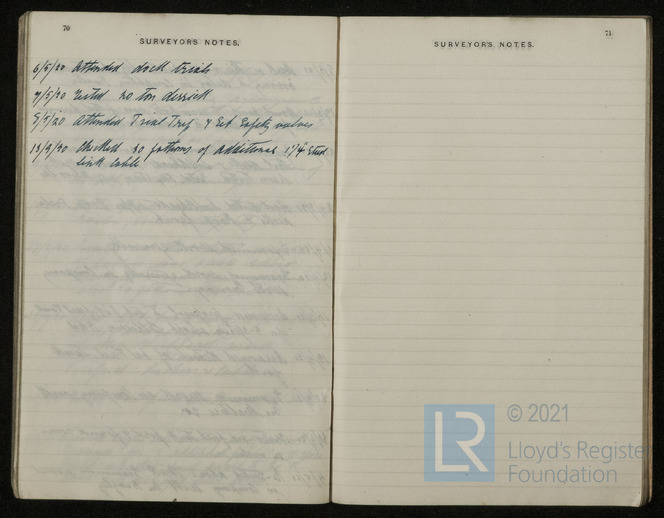 70
SURVEYOR'S NOTES.
6/5/20 Attended dock trials
7/5/20 Tested 20 ton derrick
8/5/20 Attended Trial Trip & Set Safety valves
13/9/20 Checked 30 fathoms of additional 1 1/4 Stud
link cable
71
SURVEYOR'S NOTES.
LR
© 2021
Lloyd's Register
Foundation